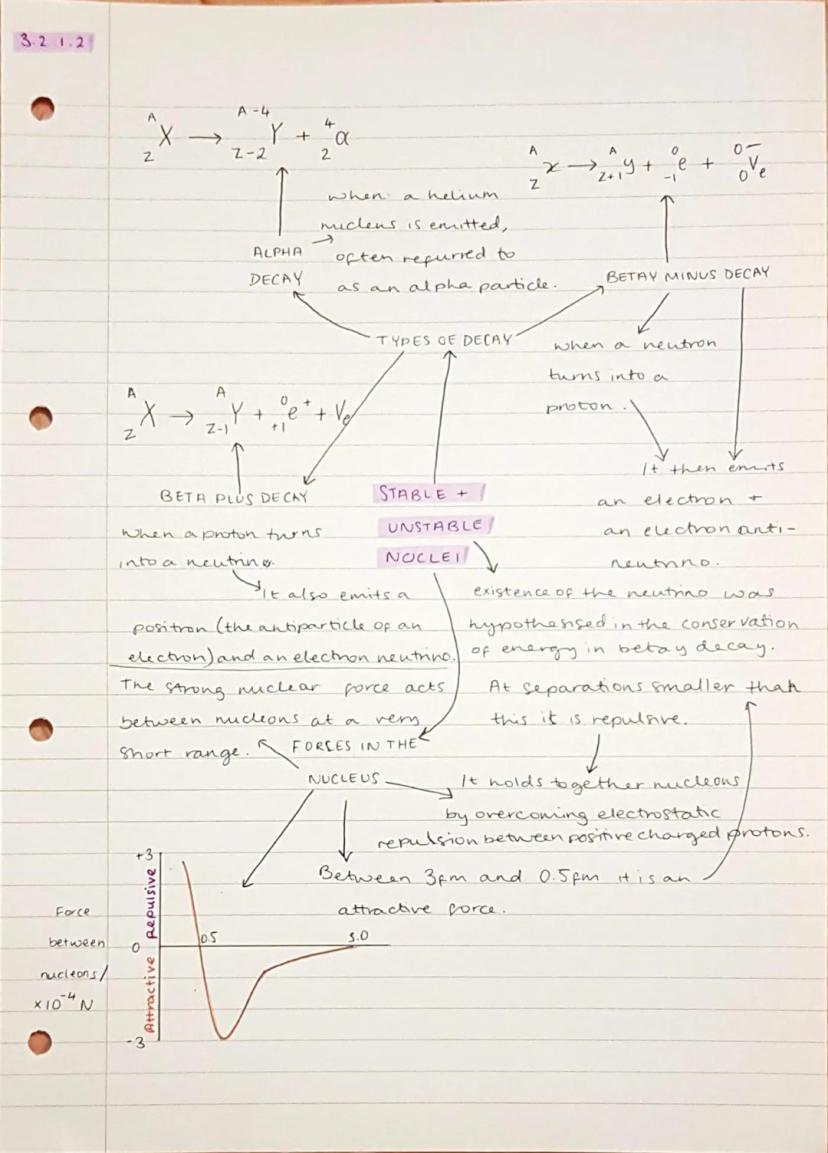 3.2 1.2
A
Z X → A-4
Z-2 Y + 4
2 α
A
Z x → A
Z+1 y + 0
-1 e + 0 –
0 Ve
when a helium
nucleus is emitted,
ALPHA → often refurred to
DECAY as an alpha particle.
BETAY MINUS DECAY
TYPES OF DECAY
when a neutron
turns into a
proton.
A
Z X → A
Z-1 Y + 0
+1 e+ + Ve
It then emits
an electron +
an electron anti-
neutrino.
BETA PLUS DECAY
STABLE +
UNSTABLE
NUCLEI
when a proton turns
into a neutrino.
It also emits a
positron (the antiparticle of an
electron) and an electron neutrino.
existence of the neutrino was
hypothesised in the conservation
of energy in betay decay.
The strong nuclear force acts
between nucleons at a very
short range.
At separations smaller than
this it is repulsive.
FORCES IN THE
NUCLEUS
It holds together nucleons
by overcoming electrostatic
repulsion between positive charged protons.
Between 3fm and 0.5fm it is an
attractive force.
+3
Repulsive
Force
between
nucleons/
×10-4 N
0
0.5
3.0
Attractive
-3